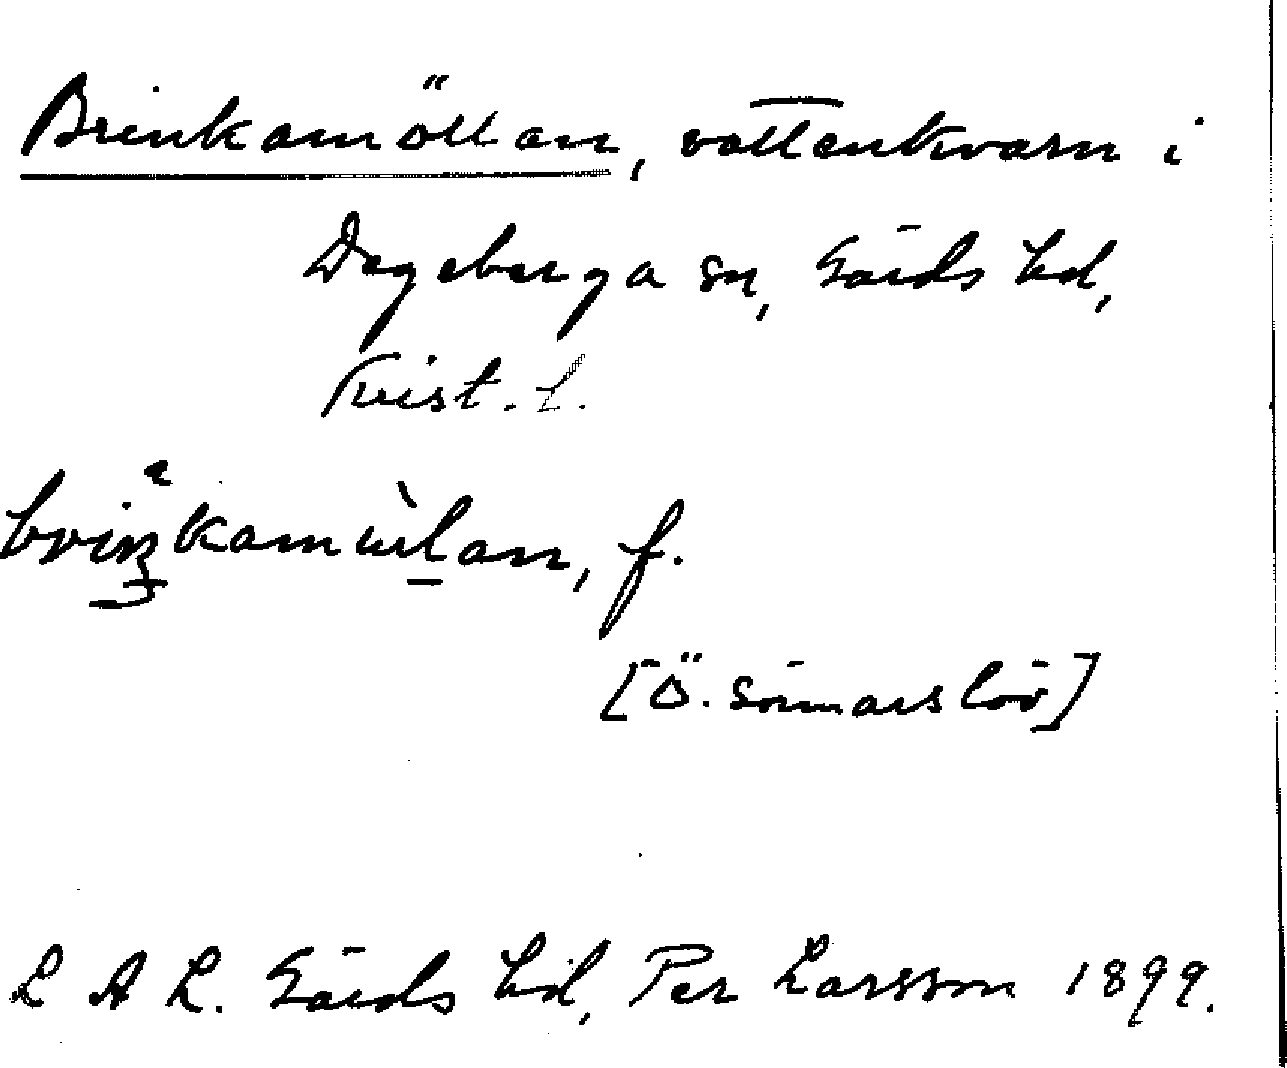 Brinkamöllan, vattenkvarn i
Degeberga sn, Gärds hd,
Krist. l.
f.
[Ö. Sönnarslöv]
L A L. Gärds hd, Per Larsson 1899.